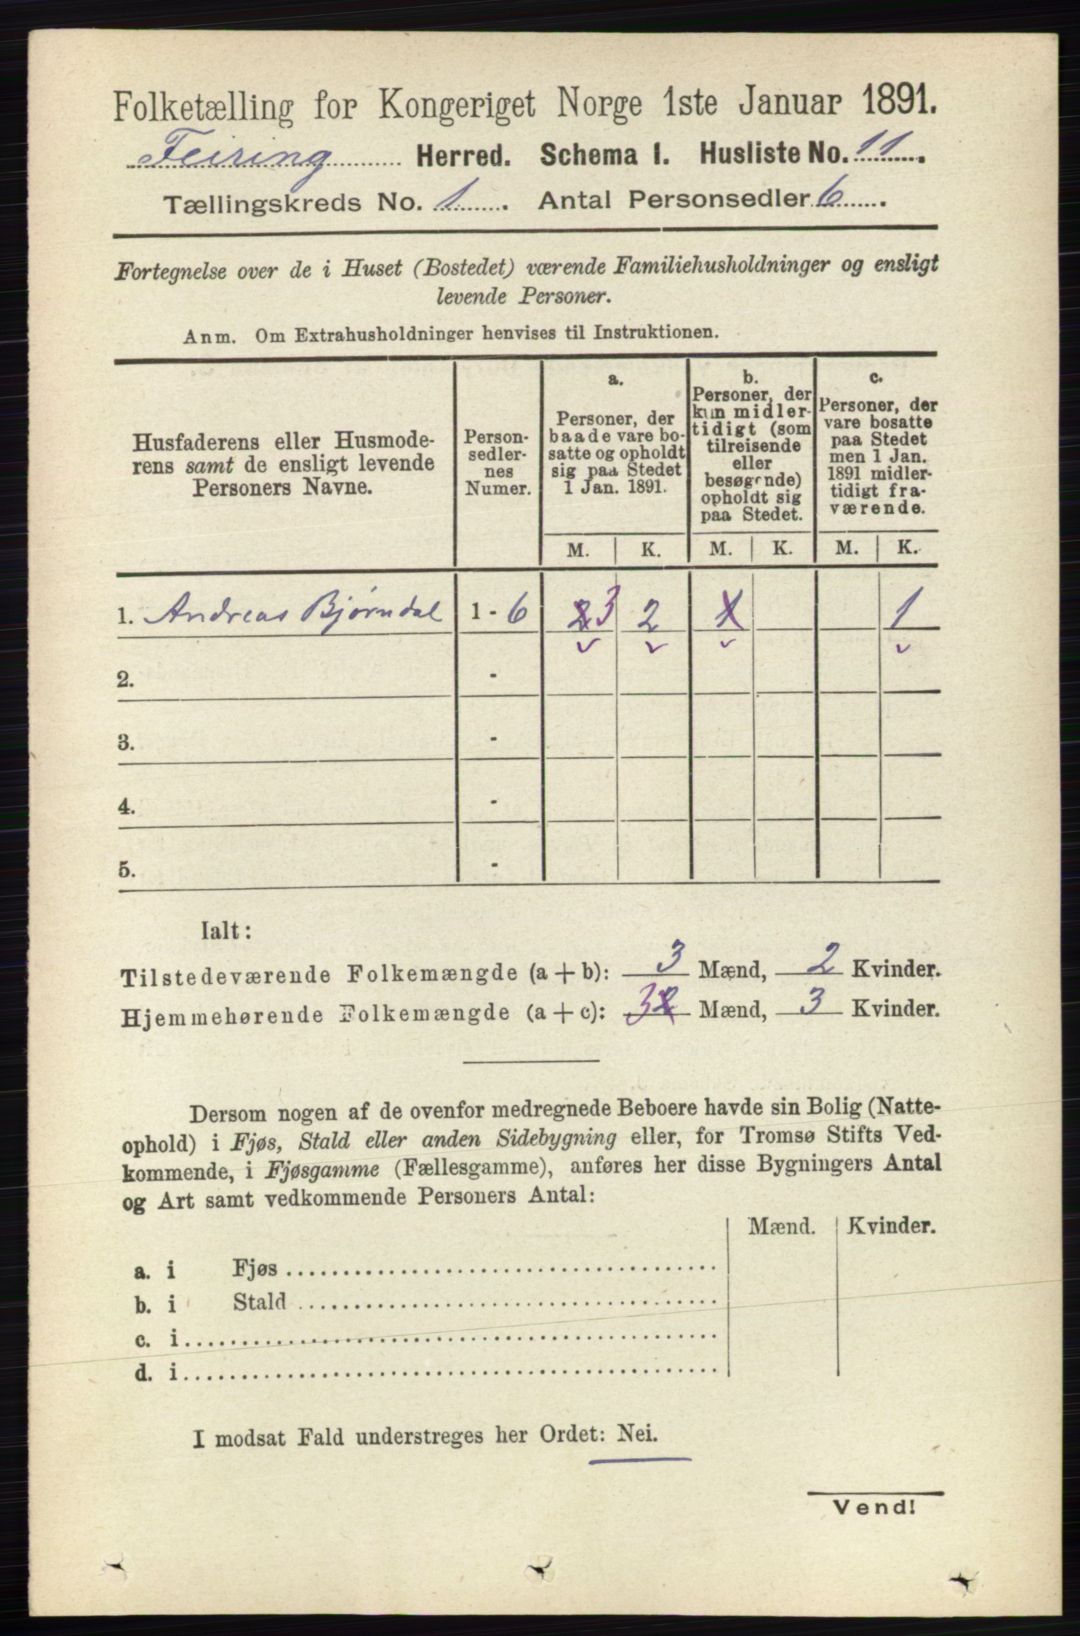 Folketælling for Kongeriget Norge 1ste Januar 1891.
Feiring Herred. Schema I. Husliste No. 11.
Tællingskreds No. 1. Antal Personsedler 6.
Fortegnelse over de i Huset (Bostedet) værende Familiehusholdninger og ensligt
levende Personer.
Anm. Om Extrahusholdninger henvises til Instruktionen.
Husfaderens eller Husmode-
rens samt de ensligt levende
Personers Navne.
Person-
sedler-
nes
Numer.
a.
Personer, der
baade vare bo-
satte og opholdt
sig paa Stedet
1 Jan. 1891.
b.
Personer, der
kun midler-
tidigt (som
tilreisende
eller
besøgende)
opholdt sig
paa Stedet.
c.
Personer, der
vare bosatte
paa Stedet
men 1 Jan.
1891 midler-
tidigt fra-
værende.
M. K. M. K. M. K.
1. Andreas Bjørndal 1 - 6 2 3 2 1 1
2. -
3. -
4. -
5. -
Ialt:
Tilstedeværende Folkemængde (a + b): 3 Mænd, 2 Kvinder.
Hjemmehørende Folkemængde (a + c): 3 2 Mænd, 3 Kvinder.
Dersom nogen af de ovenfor medregnede Beboere havde sin Bolig (Natte-
ophold) i Fjøs, Stald eller anden Sidebygning eller, for Tromsø Stifts Ved-
kommende, i Fjøsgamme (Fællesgamme), anføres her disse Bygningers Antal
og Art samt vedkommende Personers Antal:
Mænd. Kvinder.
a. i Fjøs
b. i Stald
c. i
d. i
I modsat Fald understreges her Ordet: Nei.
Vend!